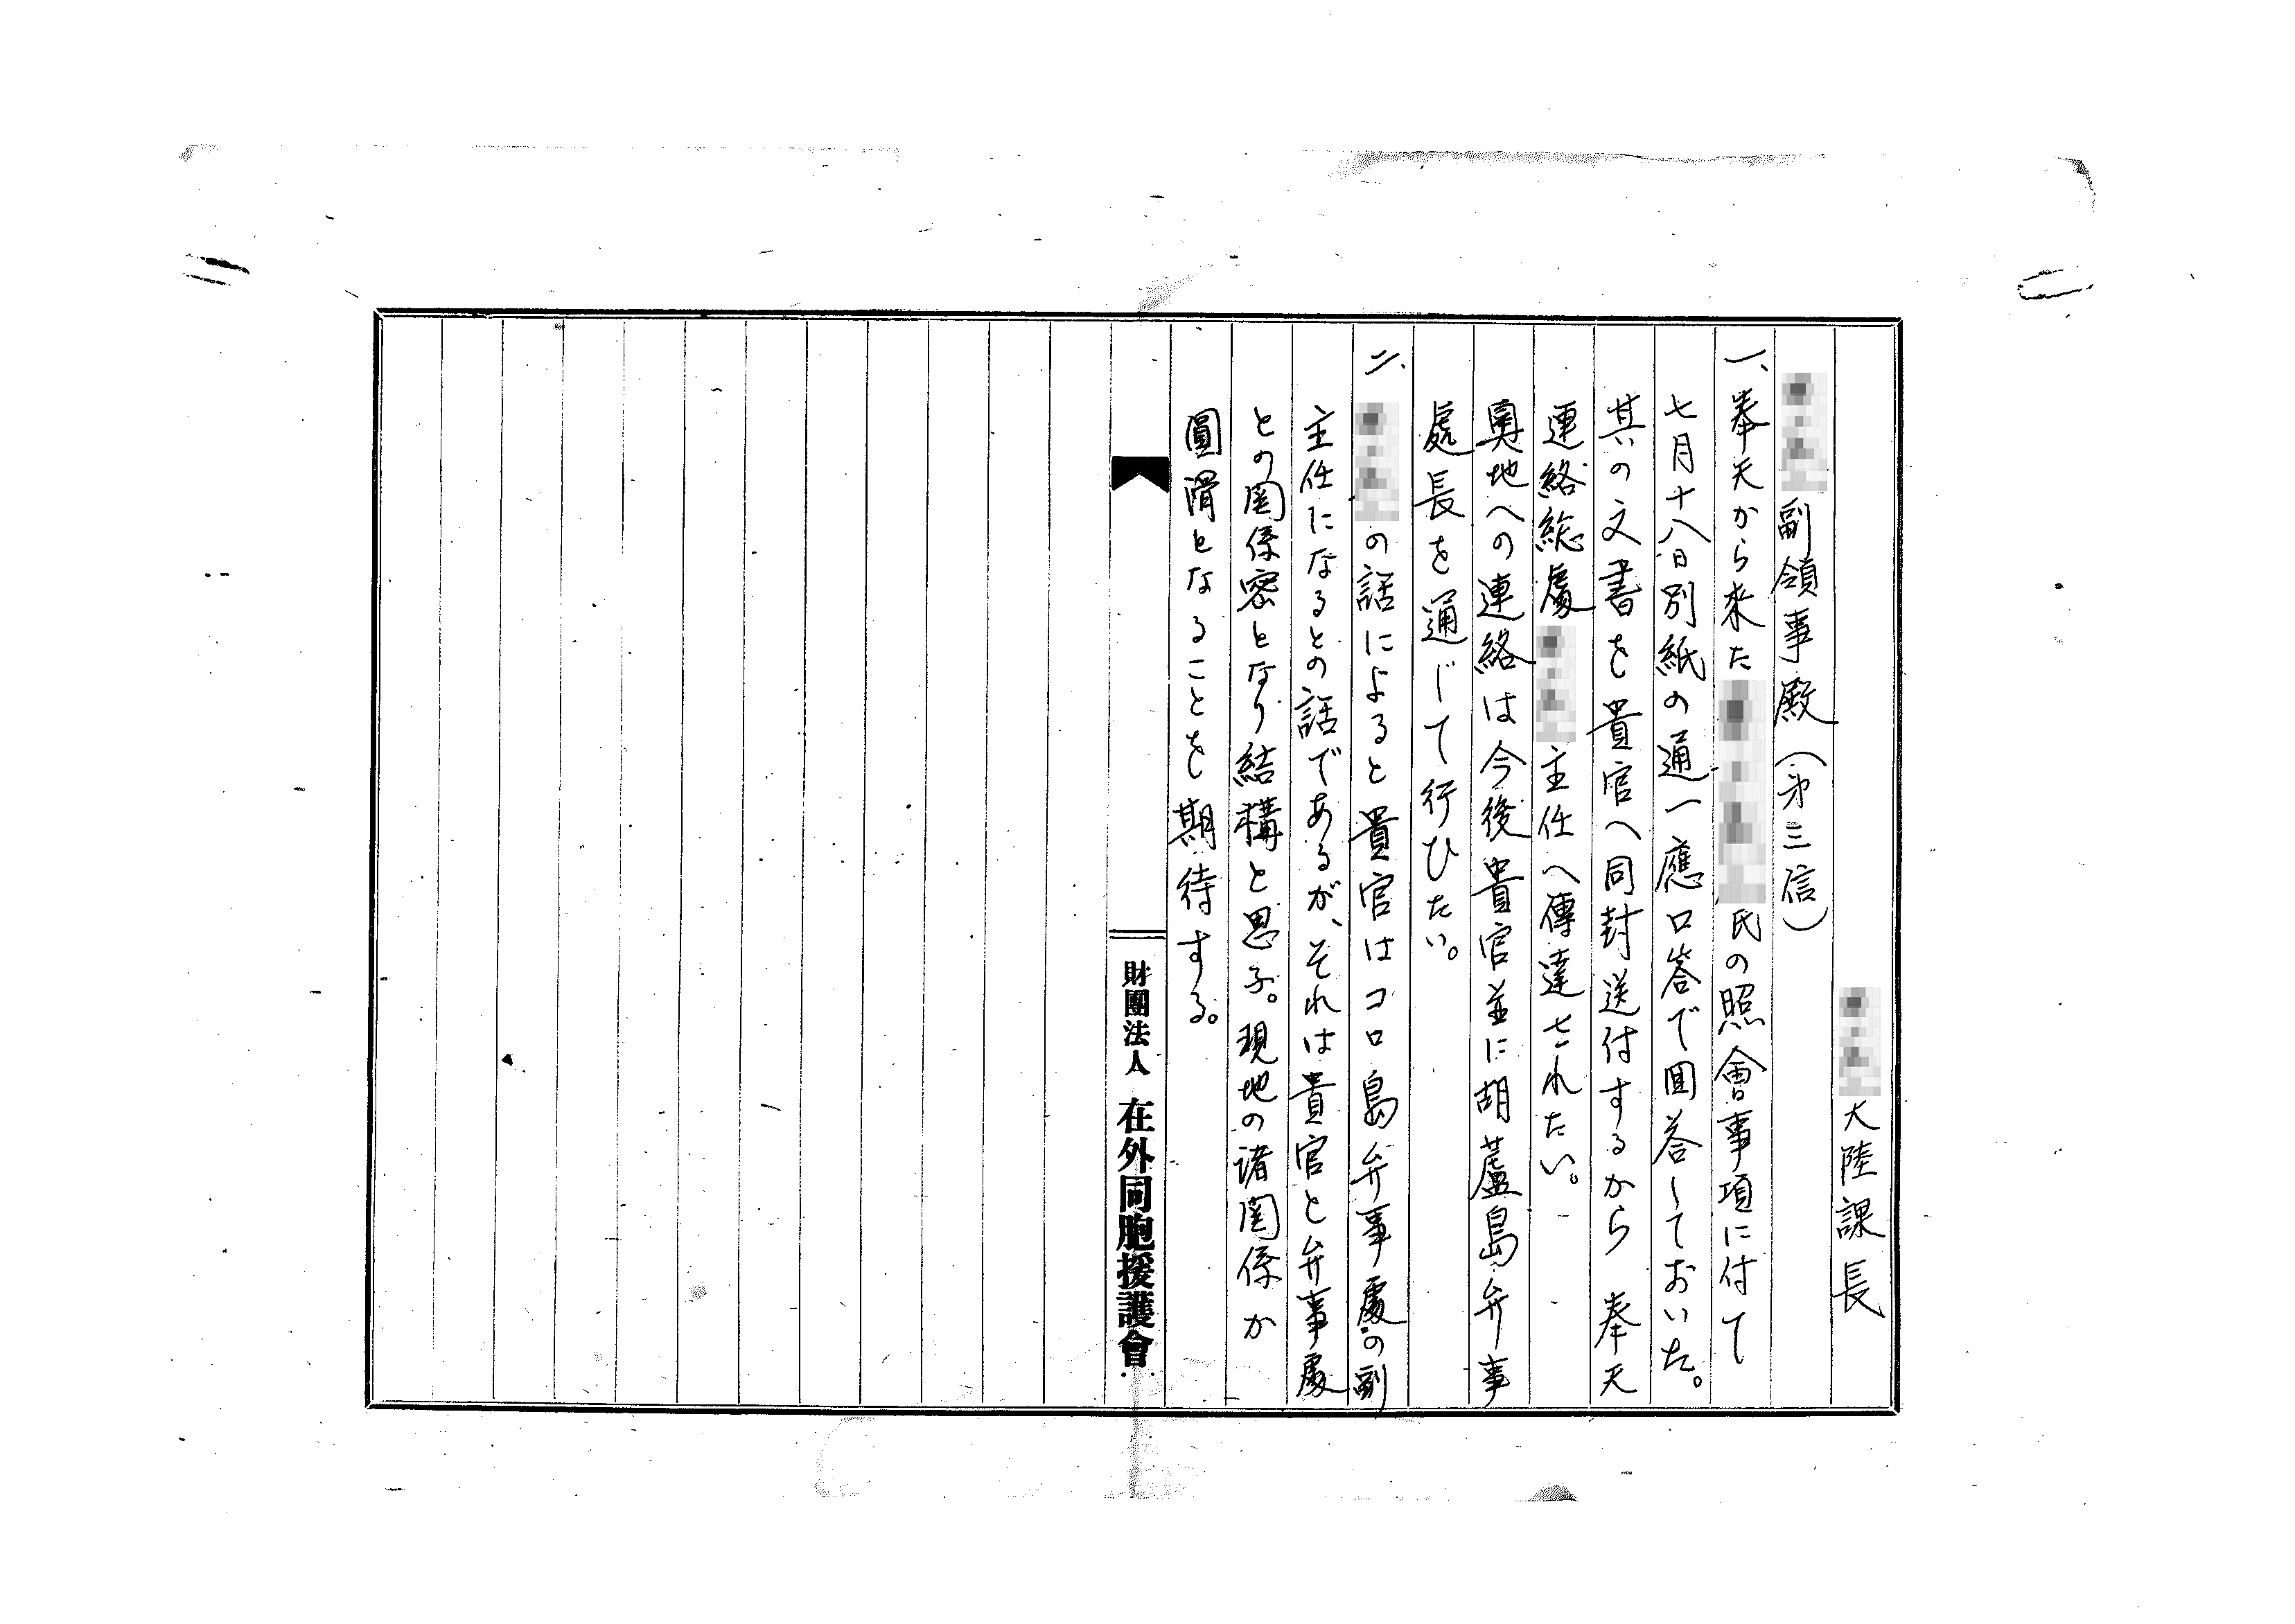 大陸課長
副領事殿(才三信)
一、奉天から来た氏の照會事項に付て
七月十八日別紙の通一應口答で回答しておいた。
其の文書を貴官へ同封送付するから奉天
連絡総處主任へ傳達されたい。
奥地への連絡は今後貴官並に胡蘆島弁事
處長を通じて行ひたい。
二、の話によると貴官はコロ島弁事處の副
主任になるとの話であるが、それは貴官と弁事處
との関係密となり結構と思ふ。現地の諸関係か
圓滑となることを期待する。
財團法人 在外同胞援護會